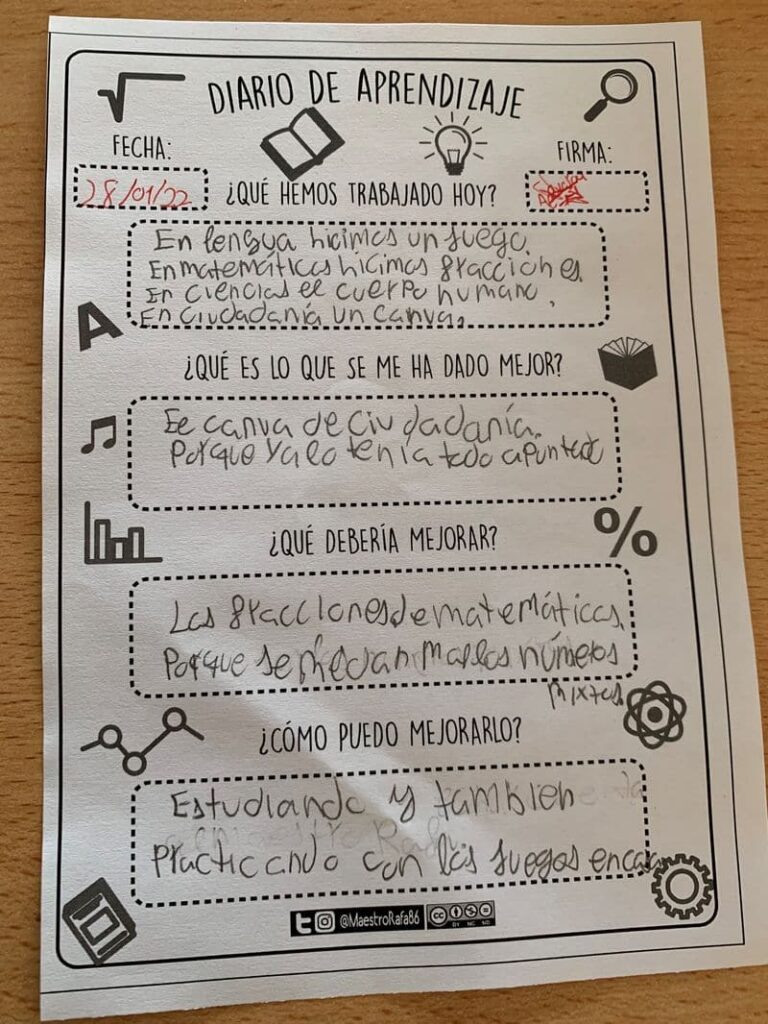 DIARIO DE APRENDIZAJE
FECHA:
FIRMA:
28/01/22
¿QUÉ HEMOS TRABAJADO HOY?
En lengua hicimos un juego.
En matemáticas hicimos fracciones.
En ciencias el cuerpo humano,
En ciudadanía un canva.
A
¿QUÉ ES LO QUE SE ME HA DADO MEJOR?
El canva de ciudadanía.
Porque ya lo tenía todo apuntado
¿QUÉ DEBERÍA MEJORAR?
%
Las fracciones de matemáticas.
Porque se me dan mal los números
mixtos.
¿CÓMO PUEDO MEJORARLO?
Estudiando y tambien
Practicando con los juegos en casa
@MaestroRafa86
cc
BY NC ND